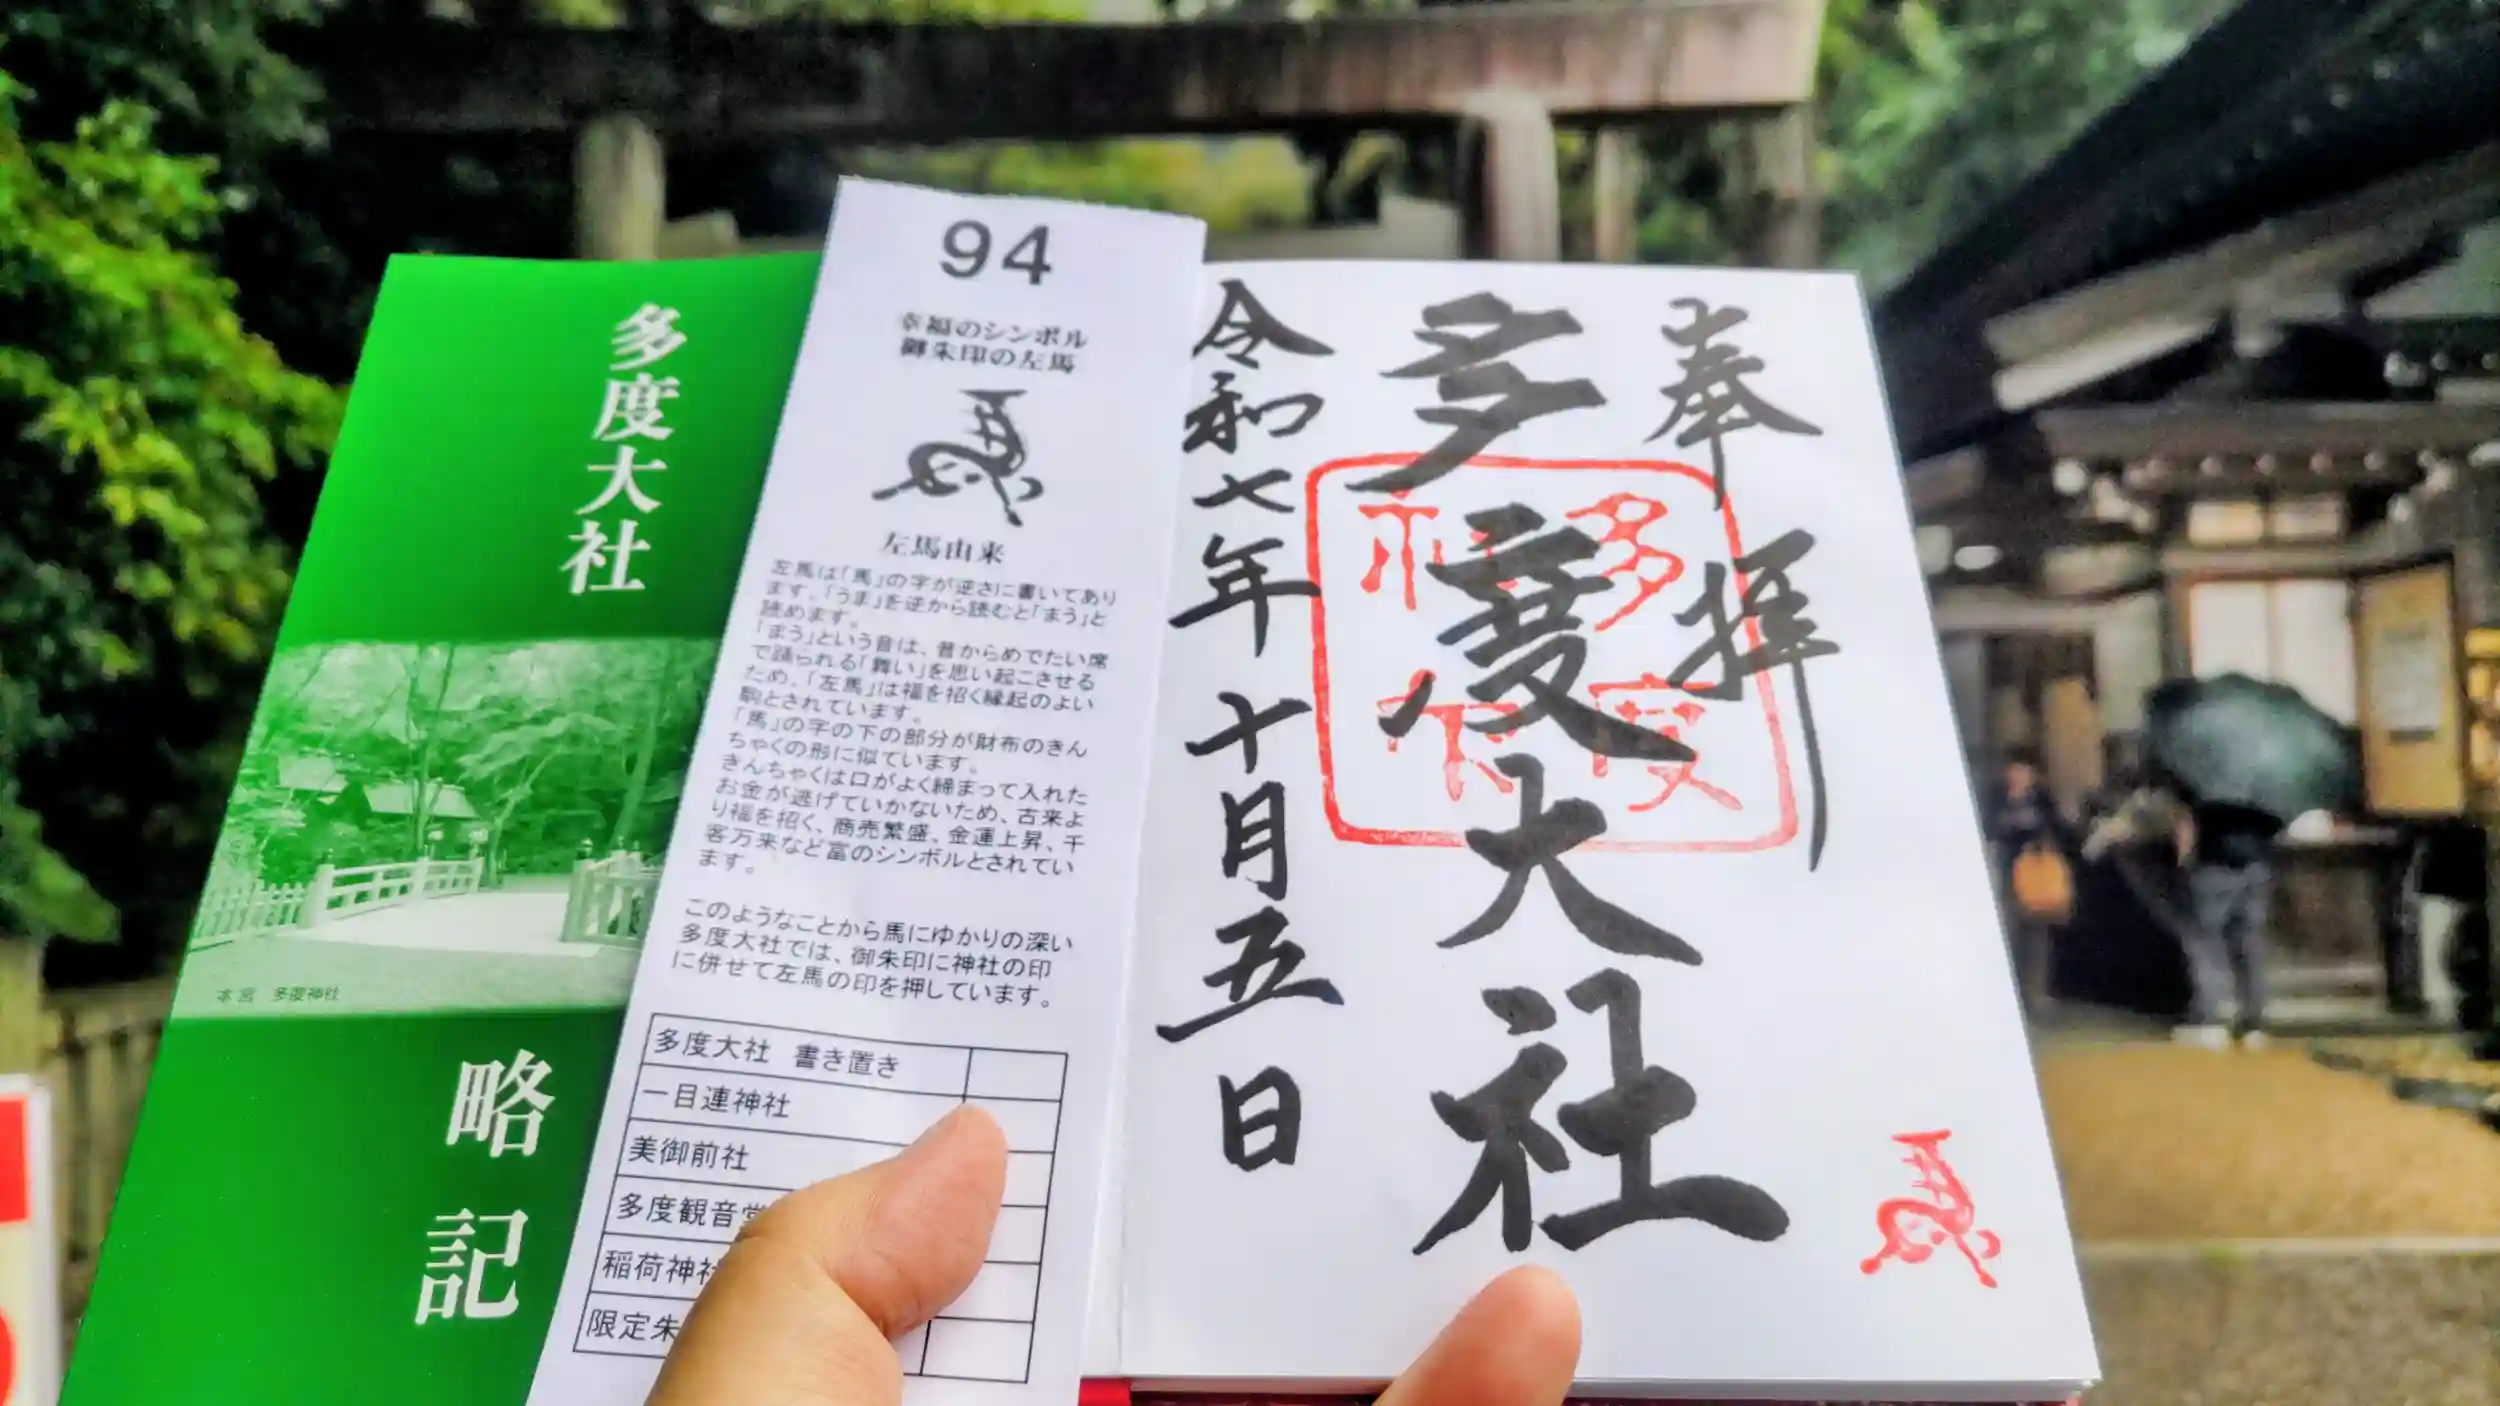 多度大社
本宮 多度神社
略記
94
幸福のシンボル
御朱印の左馬
左馬由来
左馬は「馬」の字が逆さに書いてあり
ます。「うま」を逆から読むと「まう」と
読めます。
「まう」という音は、昔からめでたい席
で踊られる「舞い」を思い起こさせる
ため、「左馬」は福を招く縁起のよい
駒とされています。
「馬」の字の下の部分が財布のきん
ちゃくの形に似ています。
きんちゃくは口がよく締まって入れた
お金が逃げていかないため、古来よ
り福を招く、商売繁盛、金運上昇、千
客万来など富のシンボルとされてい
ます。
このようなことから馬にゆかりの深い
多度大社では、御朱印に神社の印
に併せて左馬の印を押しています。
多度大社 書き置き
一目連神社
美御前社
多度観音堂
稲荷神社
限定朱
奉拝
多度大社
令和七年十月五日